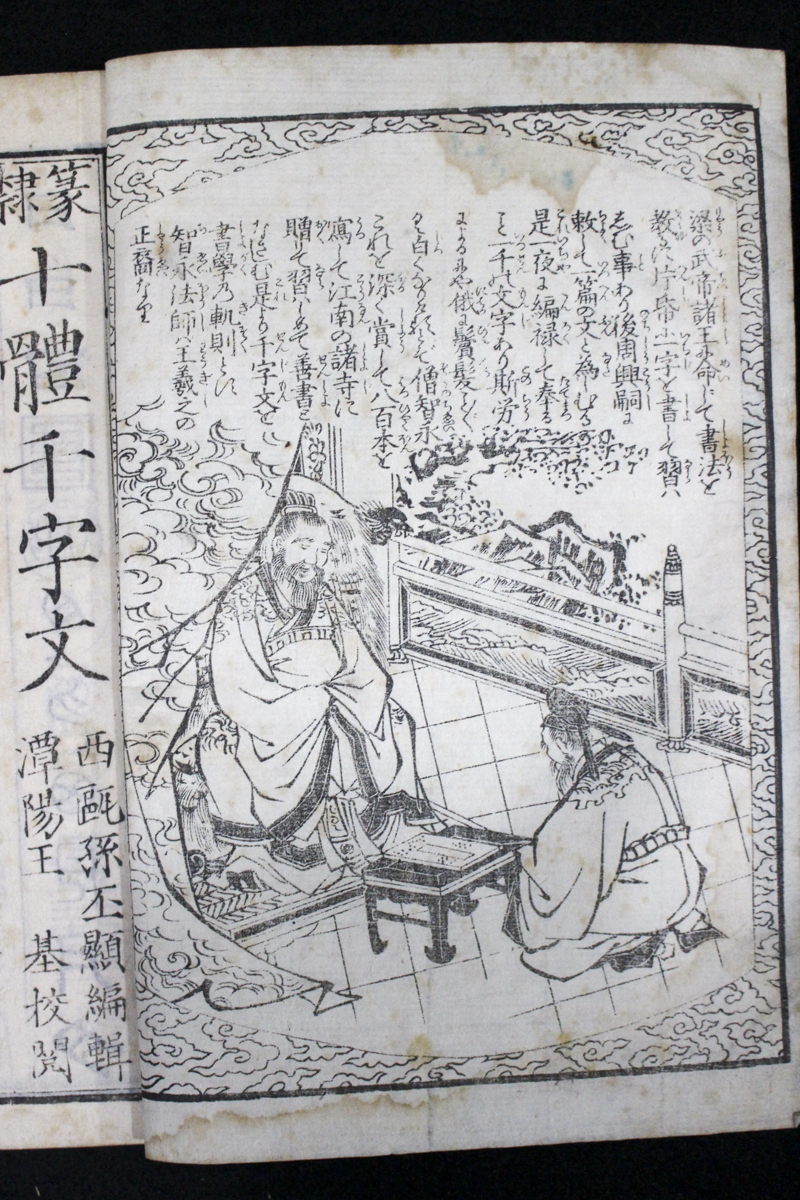 梁の武帝諸王に命じて書法を
教に片帋に一字を書して習は
しむ事あり後周興嗣に
敕して一篇の文と為しむる
是一夜に編禄して奉る
こと一千の文字あり斯労
による也や俄に鬢髪こと〴〵
く白くなるとぞ僧智永
これを深く賞して八百本を
寫して江南の諸寺に
贈て習しめて善書と
なさしむ是より千字文を
書學の軌則とす
智永法師は王羲之の
正裔なり
篆隸
十體千字文
西甌孫丕顯編輯
潭陽王基校閲